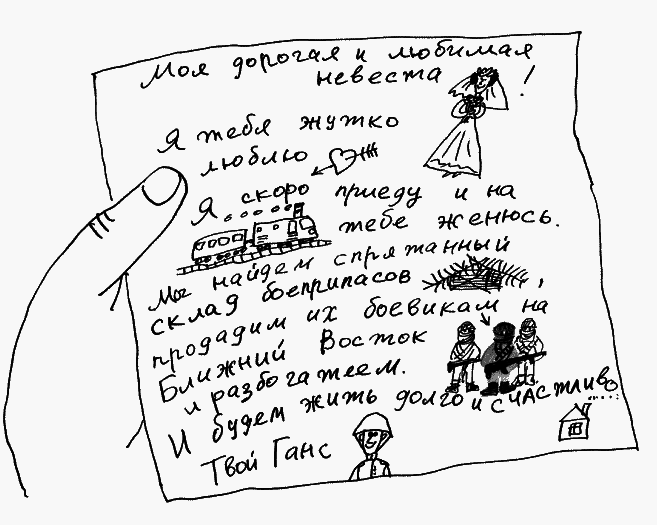 Моя дорогая и любимая
невеста !
Я тебя жутко
люблю
Я скоро приеду и на
тебе женюсь.
Мы найдем спрятанный
склад боеприпасов ,
продадим их боевикам на
Ближний Восток
и разбогатеем.
И будем жить долго и счастливо
Твой Ганс